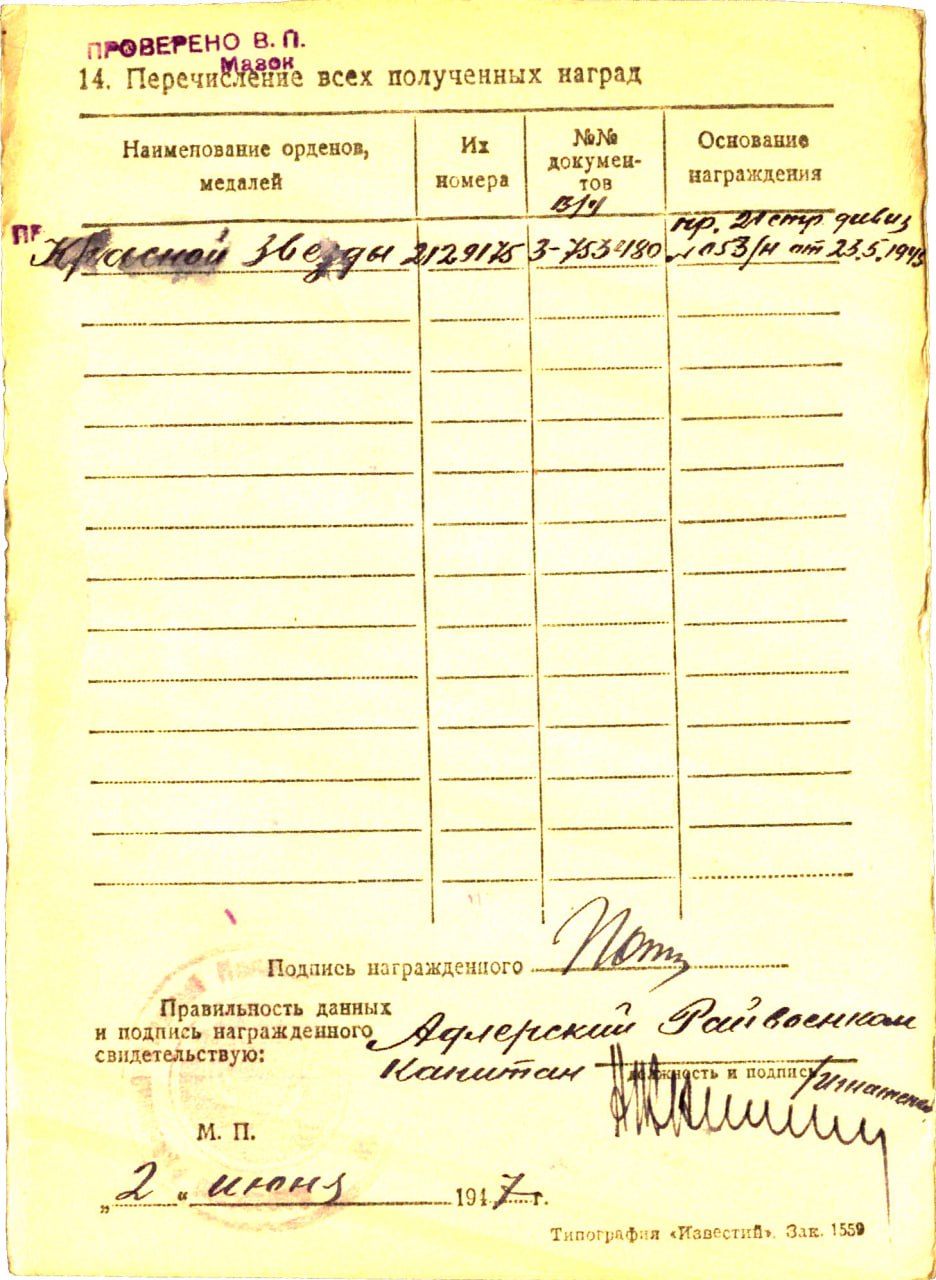 ПРОВЕРЕНО В. П.
Мазок
14. Перечисление всех полученных наград
Наименование орденов, медалей
Их номера
№№ документов
в/у
Основание награждения
ПР
Красной Звезды 2129175 З-753480 пр. 21 стр. дивиз
№ 053/н от 23.5.1945
Подпись награжденного
Правильность данных
и подпись награжденного
свидетельствую:
Адлерский Райвоенком
Капитан
должность и подпись
М. П.
„2“ июня 1947 г.
Типография «Известий». Зак. 1559